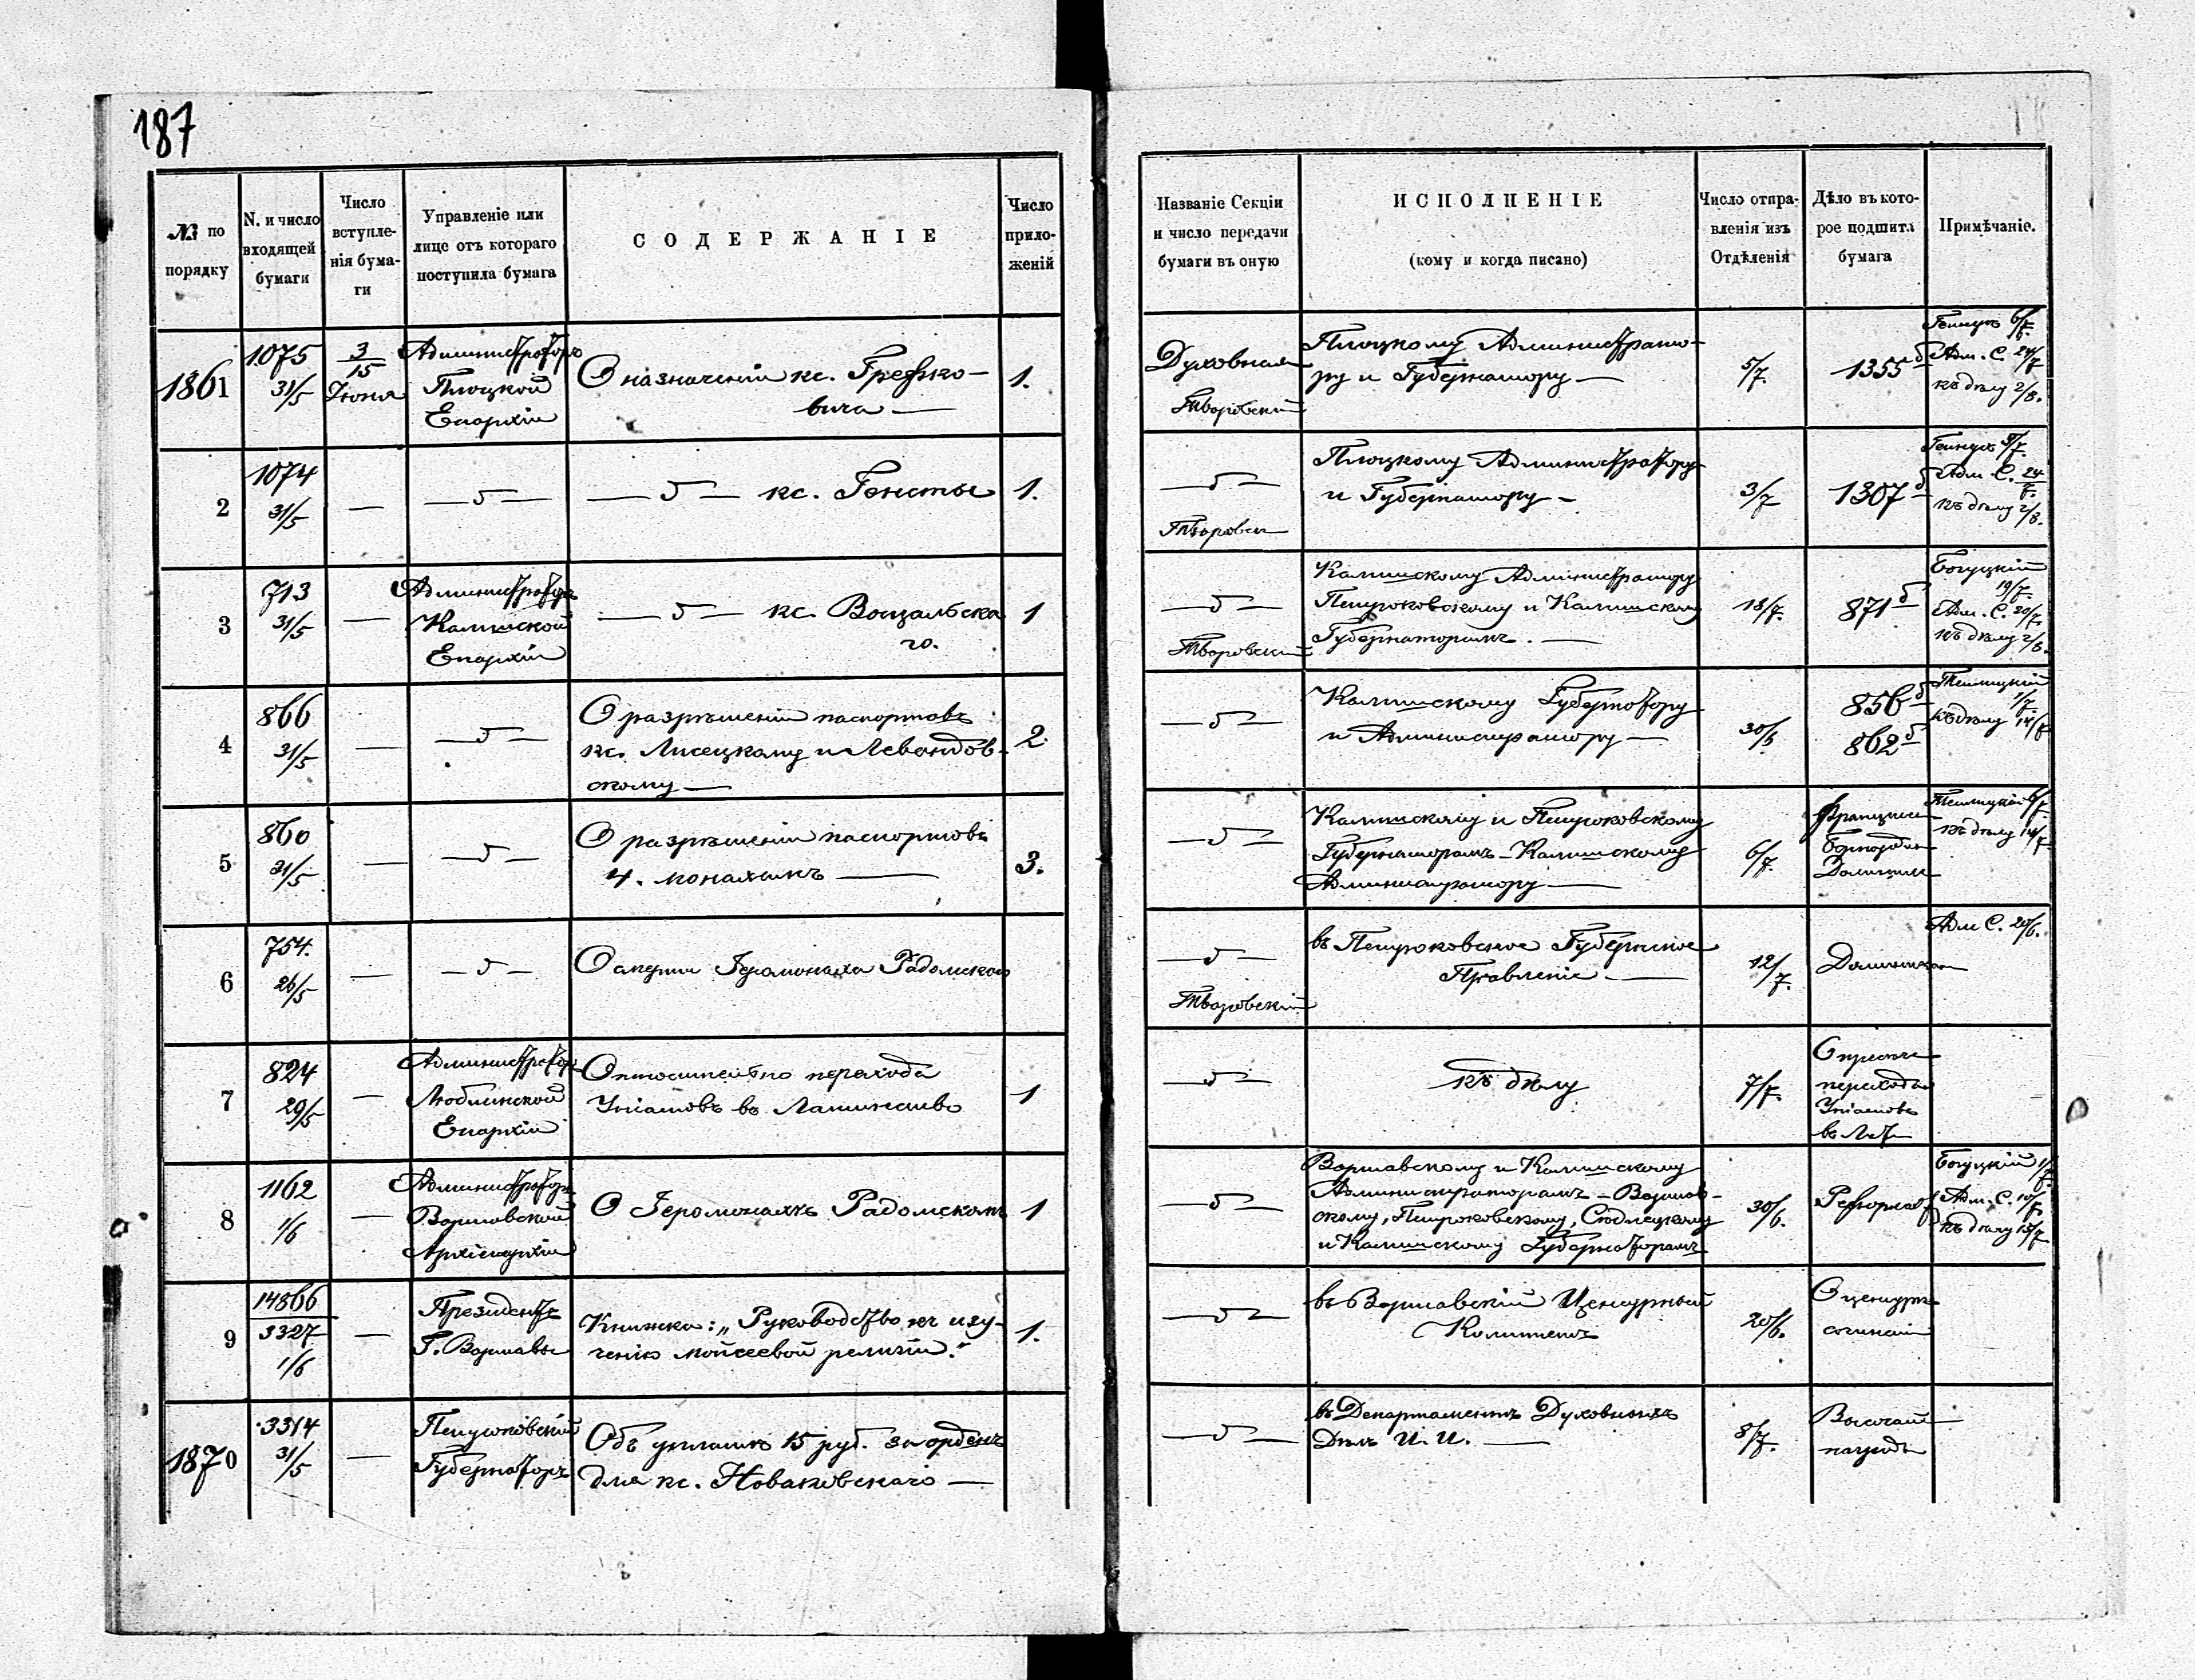 187
№ по порядку
N. и число входящей бумаги
Число вступле-нія бума-ги
Управленіе или лице отъ котораго поступила бумага
СОДЕРЖАНІЕ
Число прило-женій
Названіе Секціи и число передачи бумаги въ оную
ИСПОЛНЕНІЕ
(кому и когда писано)
Число отпра-вленія изъ Отдѣленія
Дѣло въ кото-рое подшита бумага
Примѣчаніе.
1861
1075
31/5
3/15
Іюня
Администраторъ
Плоцкой
Епархіи
О назначеніи кс. Грефко-
вича —
1.
Духовная
Творовскій
Плоцкому Администрато-
ру и Губернатору —
5/7.
1355 б
6/7.
Адм. С. 24/7
къ дѣлу 2/8.
2
1074
31/5
—
— „ —
— „ — кс. Генсты
1.
— „ —
Плоцкому Администратору
и Губернатору —
3/7
1307 б
9/7.
Адм. С. 24/7.
къ дѣлу 2/8.
3
713
31/5
—
Администраторъ
Калишской
Епархіи
— „ — кс.
го.
1
— „ —
Творовскій
Калишскому Администратору
Петроковскому и Калишскому
Губернаторамъ. —
18/7.
871 б
Богуцкій
19/7.
Адм. С. 20/7.
къ дѣлу 2/8.
4
866
31/5
—
— „ —
О разрѣшеніи паспортовъ
кс. Лисецкому и Левандов-
скому —
2
— „ —
Калишскому Губернатору
и Администратору —
856 б
862 б
1/7.
къ дѣлу 14/7
5
860
31/5
—
— „ —
О разрѣшеніи паспортовъ
4. монахамъ —
3.
— „ —
Калишскому и Петроковскому
Губернаторамъ — Калишскому
Администратору —
6/7.
6/7.
къ дѣлу 14/7
6
754.
26/5
—
— „ —
О смерти Іеромонаха Радомскаго
— „ —
Творовскій
въ Петроковское Губернское
Правленіе —
12/7.
Адм С. 20/6.
7
824
29/5
—
Администраторъ
Люблинской
Епархіи
Относительно перехода
Уніатовъ въ Латинство
1
— „ —
къ дѣлу
7/7.
перехода
Уніатовъ
въ Лат—
8
1162
1/6
—
Администраторъ
Варшавской
Архіепархіи
О Іеромонахѣ Радомскомъ
1
— „ —
Варшавскому и Калишскому
Администраторамъ — Варшав-
скому, Петроковскому, Сѣдлецкому
и Калишскому Губернаторамъ
30/6.
Реформат
Богуцкій 1/7
Адм. С. 10/7.
къ дѣлу 15/7
9
14866
3327
1/6
—
Президентъ
Г. Варшавы
Книжка: „Руководство къ изу-
ченію мойсеевой религіи."
1.
— „ —
въ Варшавскій Цензурный
Комитетъ
20/6.
О цензурѣ
1870
3314
31/5
—
Петроковскій
Губернаторъ
Объ уплатѣ 15 руб. за орденъ
для кс. Новаковскаго —
— „ —
въ Департаментъ Духовныхъ
Дѣлъ И. И. —
8/7.
Высочай—
наградъ